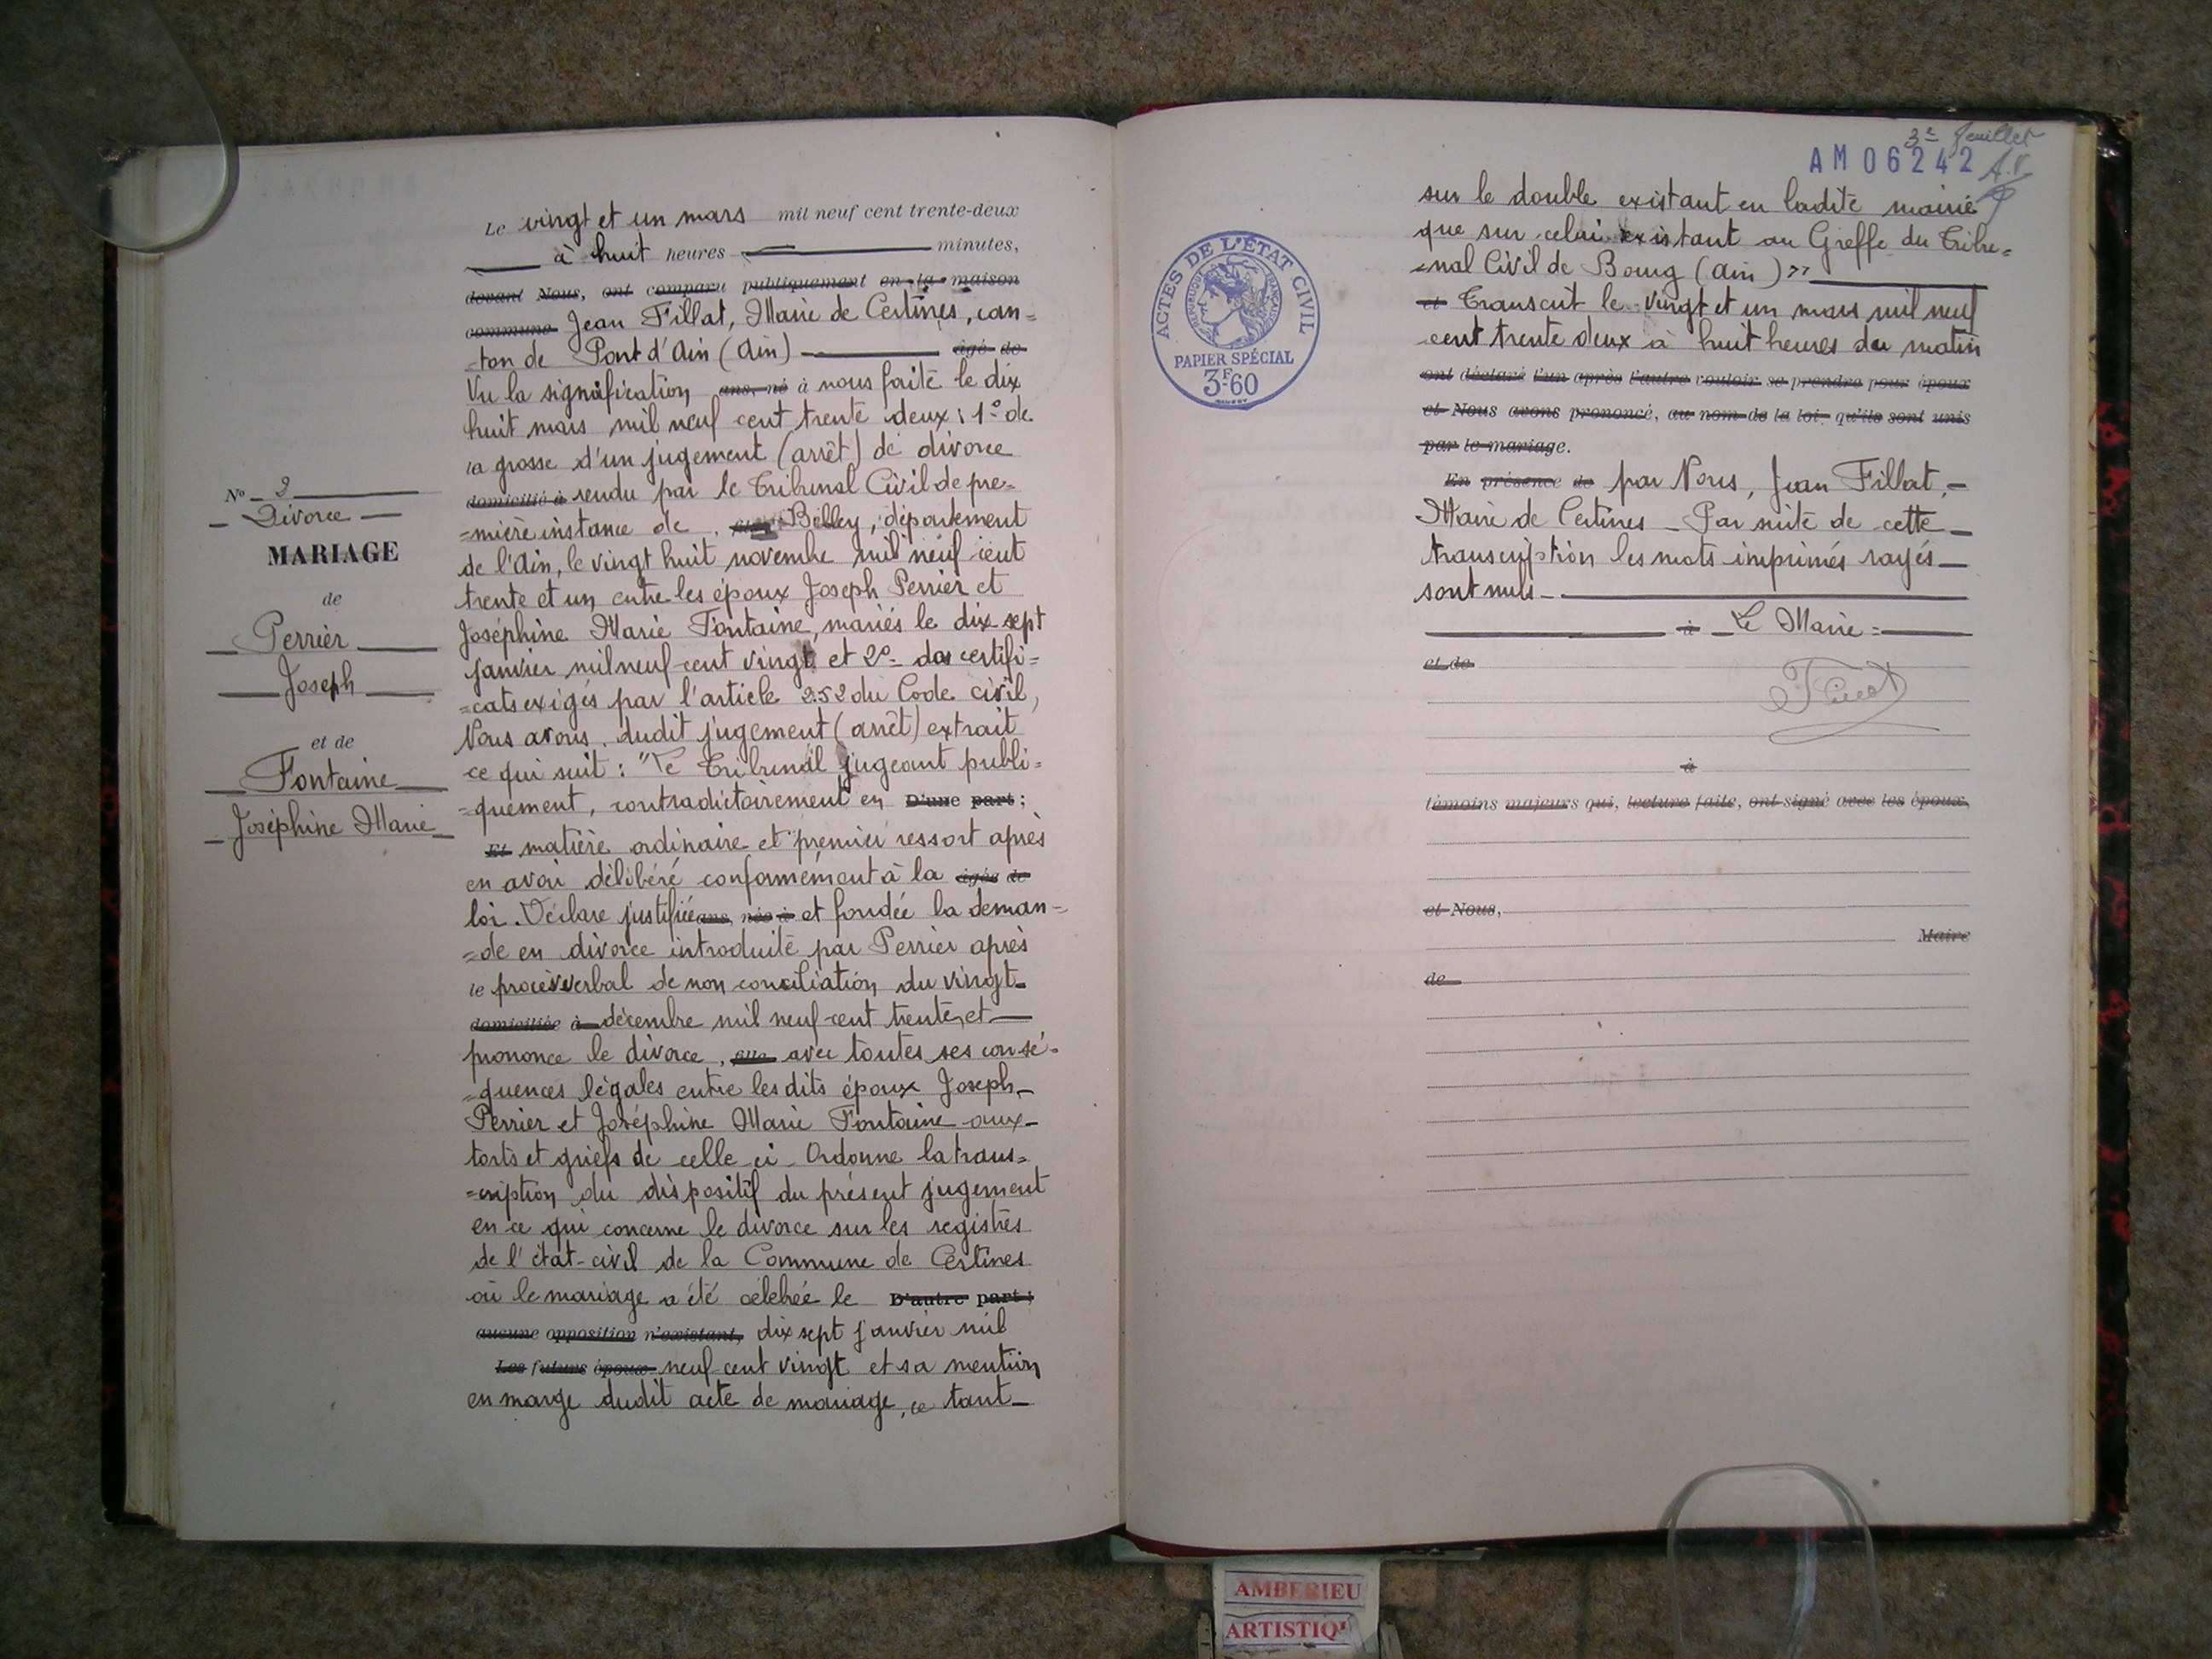 Le vingt et un mars mil neuf cent trente-deux
à huit heures minutes,
devant Nous, ont comparu publiquement en la maison
commune Jean Fillat, Maire de Certines, can=
ton de Pont d'Ain (Ain) âgé de
Vu la signification ans, né à nous faite le dix
huit mars mil neuf cent trente deux : 1° de
la grosse d'un jugement (arrêt) de divorce
domicilié à rendu par le Tribunal Civil de pre=
=mière instance de fils Belley, département
de l'Ain, le vingt huit novembre mil neuf cent
trente et un entre les époux Joseph Perrier et
Joséphine Marie Fontaine, mariés le dix sept
janvier mil neuf cent vingt et 2° des certifi=
=cats exigés par l'article 252 du Code civil,
Nous avons dudit jugement (arrêt) extrait
ce qui suit : "Le Tribunal jugeant publi=
=quement, contradictoirement en D'une part ;
Et matière ordinaire et premier ressort après
en avoir délibéré conformément à la âgée de
loi. Déclare justifiée ans, née à et fondée la deman=
=de en divorce introduite par Perrier après
le procès verbal de non conciliation du vingt
domiciliée à décembre mil neuf cent trente, et
prononce le divorce, fille avec toutes ses consé=
=quences légales entre les dits époux Joseph
Perrier et Joséphine Marie Fontaine aux
torts et griefs de celle ci. Ordonne la trans=
=cription du dispositif du présent jugement
en ce qui concerne le divorce sur les registres
de l'état-civil de la Commune de Certines
où le mariage a été célébré le D'autre part ;
aucune opposition n'existant, dix sept janvier mil
Les futurs époux neuf cent vingt et sa mention
en marge dudit acte de mariage, ce tant
N° 2
Divorce
MARIAGE
de
Perrier
Joseph
et de
Fontaine
Joséphine Marie
3e feuillet
AM 06242
A.V.
sur le double existant en ladite mairie
que sur celui existant au Greffe du Tribu=
=nal Civil de Bourg (Ain) »
et Transcrit le vingt et un mars mil neuf
cent trente deux à huit heures du matin
ont déclaré l'un après l'autre vouloir se prendre pour époux
et Nous avons prononcé, au nom de la loi, qu'ils sont unis
par le mariage.
En présence de par Nous, Jean Fillat,
Maire de Certines. Par suite de cette
transcription les mots imprimés rayés
sont nuls
à Le Maire :
et de
à
témoins majeurs qui, lecture faite, ont signé avec les époux,
et Nous,
Maire
de
ACTES DE L'ÉTAT CIVIL
RÉPUBLIQUE FRANÇAISE
PAPIER SPÉCIAL
3F-60
AMBERIEU
ARTISTIQ